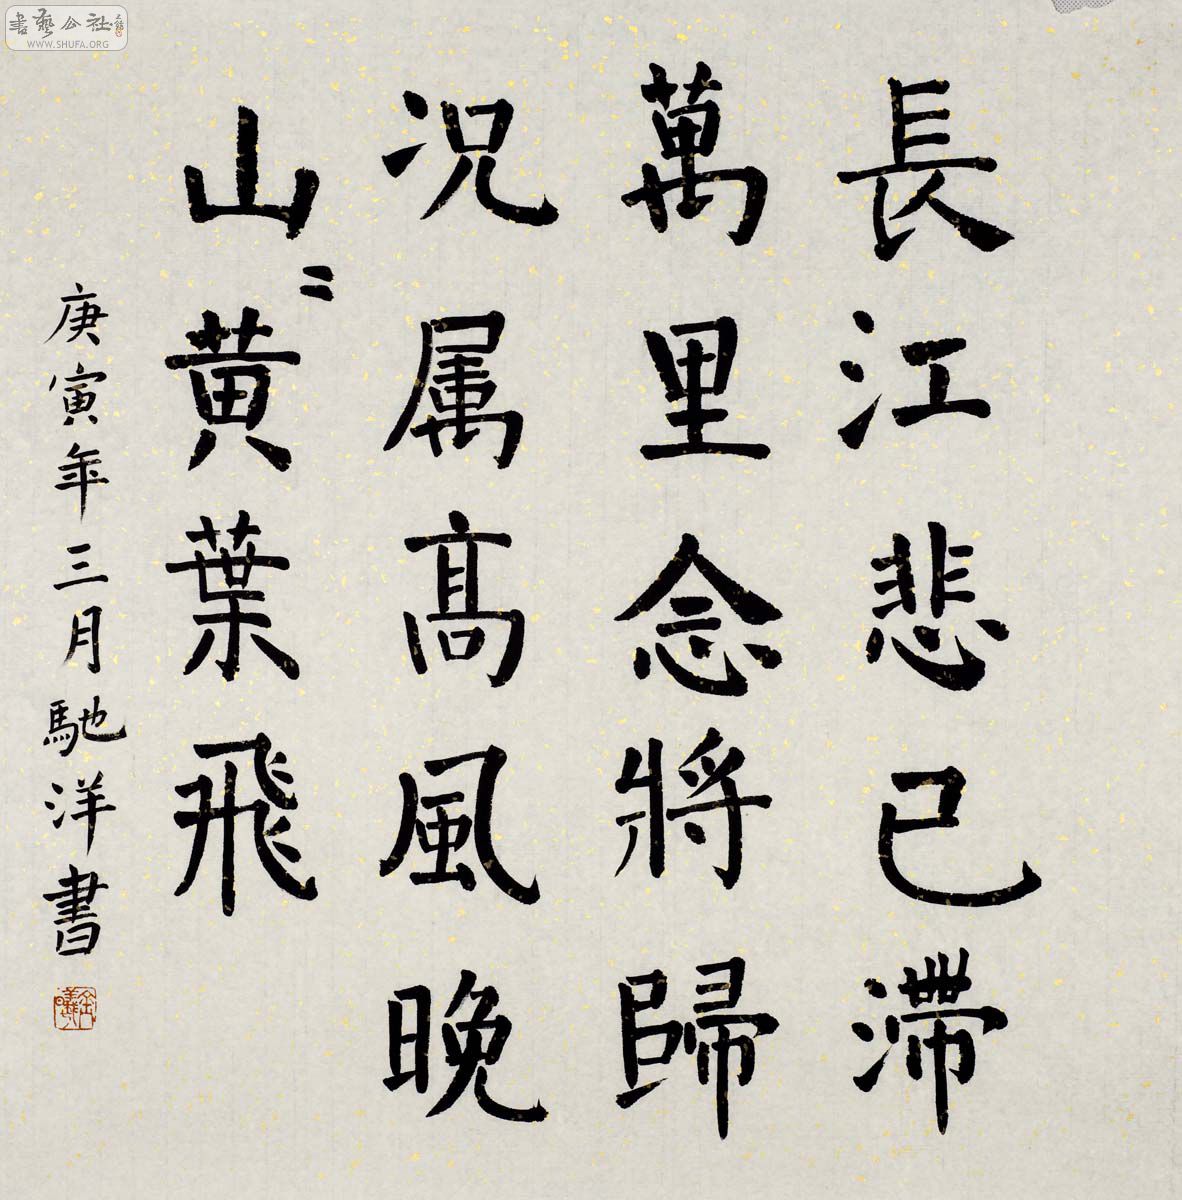 長江悲已滯
萬里念將歸
况属髙風晚
山〻黄葉飛
庚寅年三月馳洋書
書藝公社
WWW.SHUFA.ORG